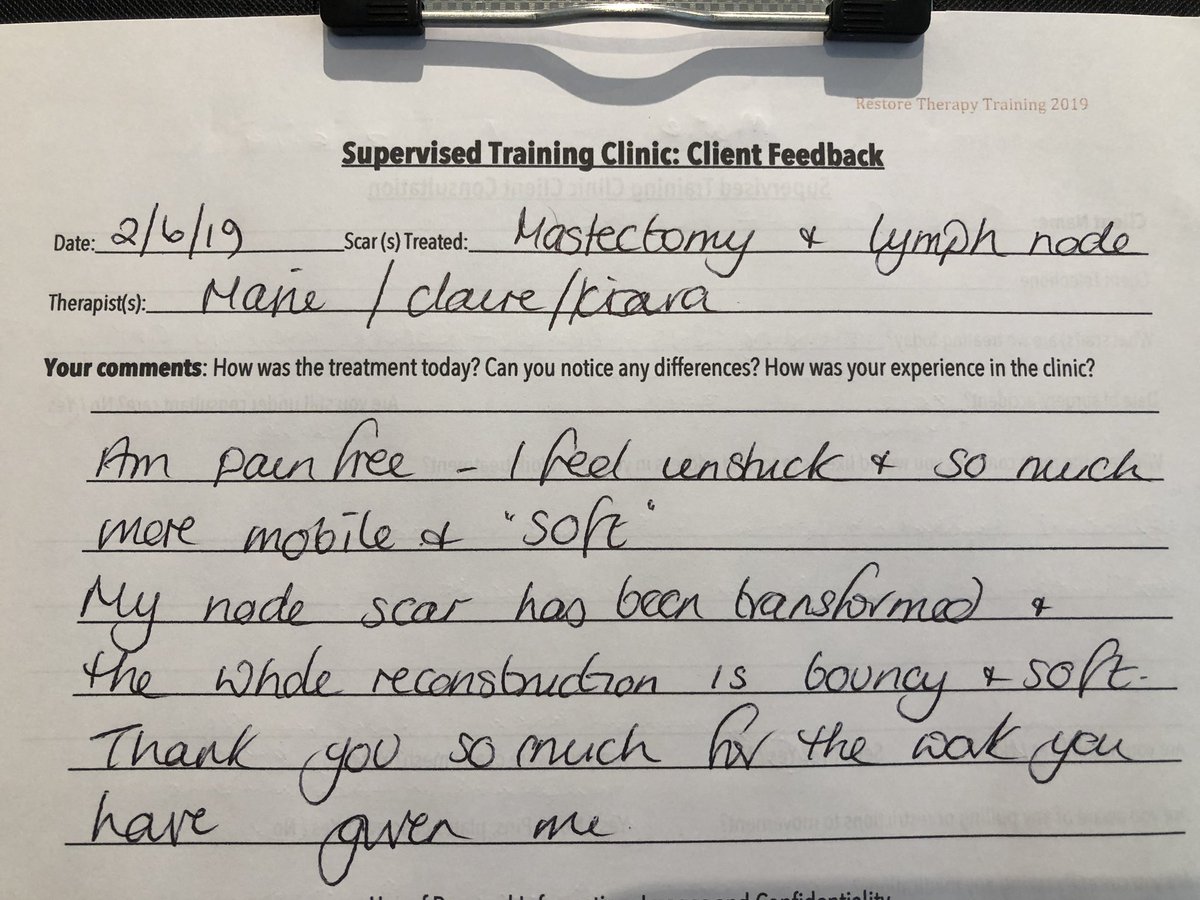 Restore Therapy Training 2019
Supervised Training Clinic: Client Feedback
Date: 2/6/19 Scar (s) Treated: Mastectomy & lymph node
Therapist(s): Marie / Claire / Kiara
Your comments: How was the treatment today? Can you notice any differences? How was your experience in the clinic?
Am pain free - I feel unstuck & so much
more mobile & "soft"
My node scar has been transformed &
the whole reconstruction is bouncy & soft.
Thank you so much for the work you
have given me